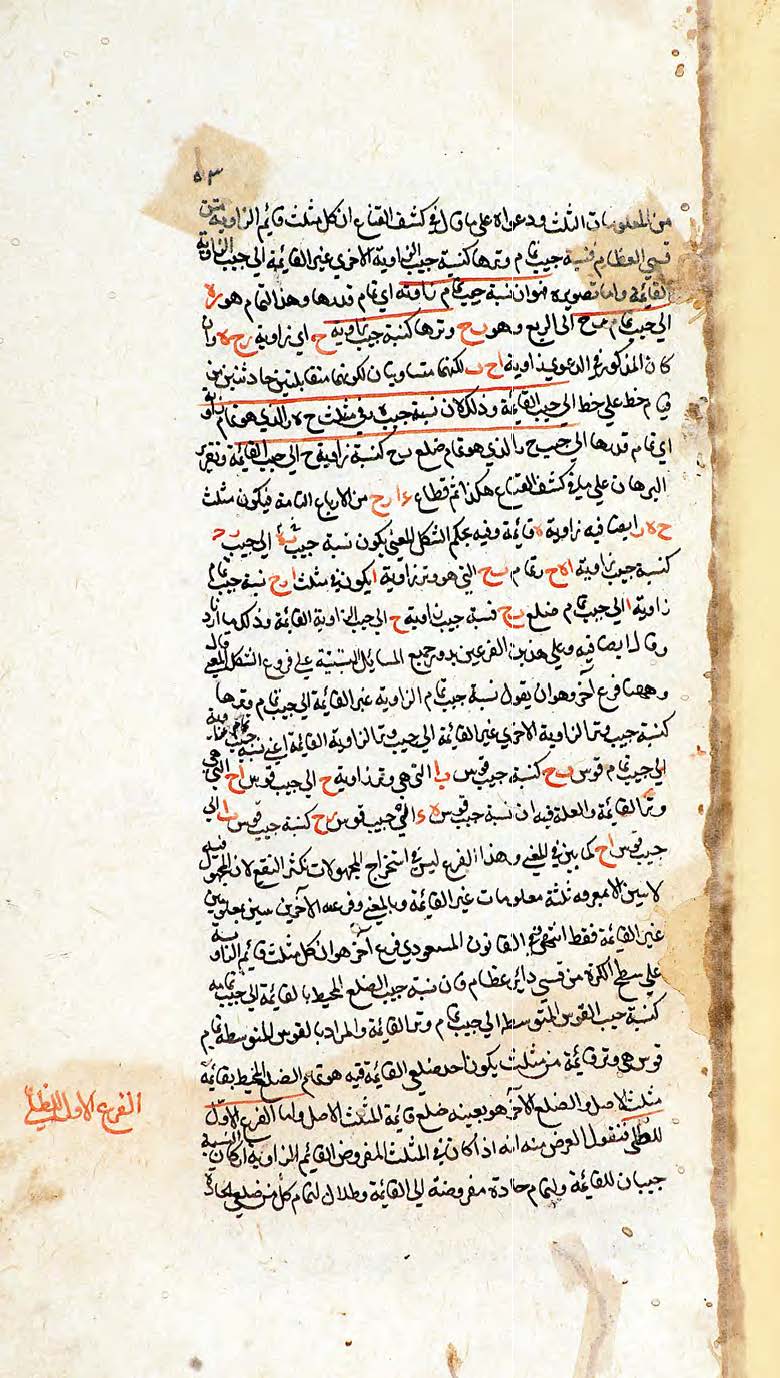 ٥٣
من المعلومات الثلث ودعواه على ما قال في كشف القناع ان كل مثلث قائم الزاوية من
قسي العظام فنسبة جيب تمام وترها كنسبة جيب الزاوية الاخرى غير القائمة الى جيب الزاوية
القائمة واما تصويره فهو ان نسبة جيب تمام زاوية اي تمام قدرها وهذا التمام هو ره
الى جيب تمام الى الربع وهو رح وترها كنسبة جيب زاوية ح اي زاوية رح ه وان
كان المذكور في الدعوى زاوية اح ب لكنهما متساويان لكونهما متقابلتين حادثتين من
قيام خط على خط الى جيب القائمة وذلك لان نسبة جيب ه ر في مثلث ح ه ر الذي هو تمام زاوية
اي تمام قدرها الى جيب ح ر الذي هو تمام ضلع ب ح كنسبة زاوية ح الى جيب القائمة وتقرير
البرهان على ما في كشف القناع هكذا ثم قطاع من الارباع التامة فيكون مثلث
ح ه ر ايضا فيه زاوية ه قائمة وفيه بحكم الشكل المغني يكون نسبة جيب ره الى جيب رح
كنسبة جيب زاوية تمام ب ح التي هو وتر زاوية ا يكون في مثلث ا ب ح نسبة جيب تمام
زاوية ا الى جيب تمام ضلع ب ح فنسبة جيب زاوية ح الى جيب الزاوية القائمة وذلك ما اردنا
وقال ايضا فيه وعلى هذين الفرعين يدور جميع المسائل المبتنية على فروع الشكل المغني قال
وههنا فرع آخر وهو ان يقول نسبة جيب تمام الزاوية غير القائمة الى جيب تمام وترها
كنسبة جيب وتر الزاوية الاخرى غير القائمة الى جيب وتر الزاوية القائمة اعني نسبة جيب تمام زاوية
الى جيب تمام قوس ب ح كنسبة جيب قوس ب ا التي هي وتر زاوية ح الى جيب قوس ا ح التي هي
وتر القائمة والعلة فيه ان نسبة جيب قوس ه ر الى جيب قوس رح كنسبة جيب قوس ب ا الى
جيب قوس ا ح كما بين في المغني وهذا الفرع ليس في استخراج المجهولات بكثير النفع لان المجهول فيه
لا يبين الا بمعرفة ثلثة معلومات غير القائمة وبالمغني وفرعه الآخرين سيبين بمعلومين
غير القائمة فقط انتهى وفي القانون المسعودي فرع آخر هو ان كل مثلث قائم الزاوية
على سطح الكرة من قسي دائر عظام فان نسبة جيب الضلع المحيط بالقائمة الى جيب تمامه
كنسبة جيب القوس المتوسط الى جيب تمام وتر القائمة والمراد بالقوس المتوسطة تمام
قوس هي وتر قائمة من مثلث يكون احد ضلعي القائمة فيه هو تمام الضلع المحيط بقائمة
مثلث الاصل والضلع الآخر هو بعينه ضلع قائمة المثلث الاصل واما الفرع الاول
للظلي فنقول الغرض منه انه اذا كان في المثلث المفروض القائم الزاوية اركان النسبة
جيبان للقائمة ولتمام حادة مفروضة الى القائمة وظلان لتمام كل من ضلعي الحادة
الفرع الاول للظلي